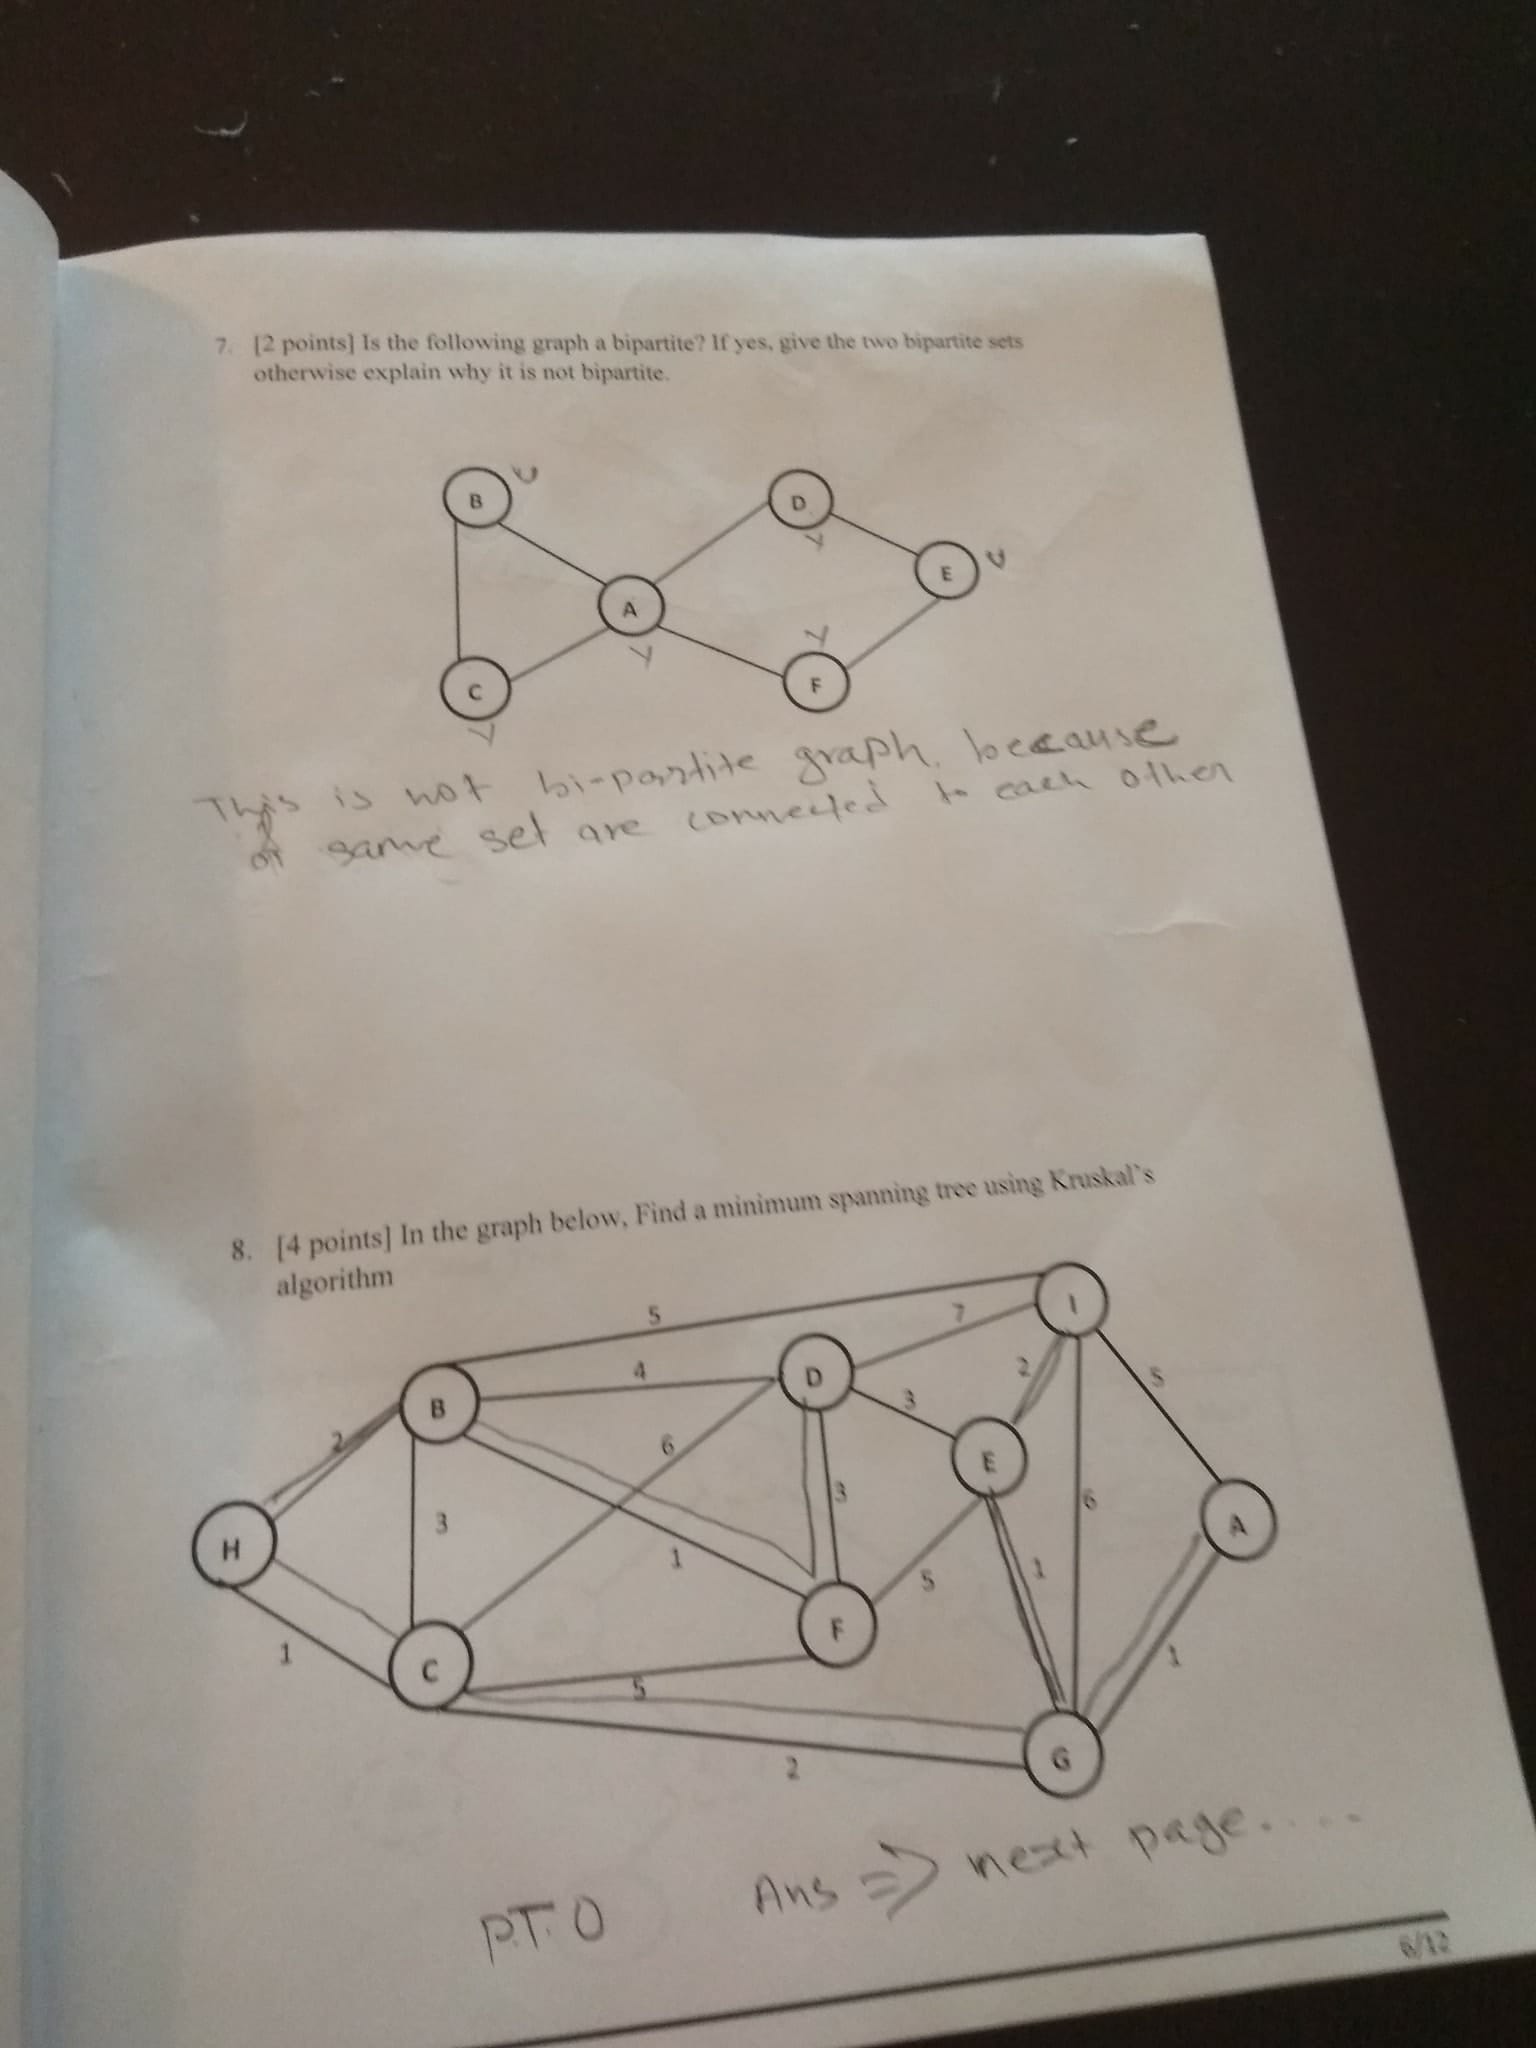 7. [2 points] Is the following graph a bipartite? If yes, give the two bipartite sets
otherwise explain why it is not bipartite.
B U
D
Y
E U
A
Y
Y
F
C
Y
This is not bi-partite graph, because
of same set are connected to each other
8. [4 points] In the graph below, Find a minimum spanning tree using Kruskal's
algorithm
I
5
7
D
4
2
5
B
3
2
6
E
3
6
A
H
3
1
5
1
F
1
C
1
5
G
2
Ans => next page.....
P.T.O
6/12